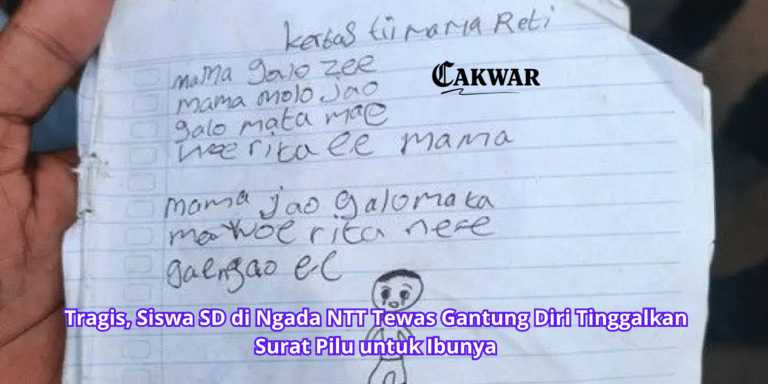 kertas tii mama Reti
mama galo zee
CAKWAR
mama molo jao
galo mata mae
woe rita ee mama
mama jao galo mata
mae woe rita nere
gaengao ee
Tragis, Siswa SD di Ngada NTT Tewas Gantung Diri Tinggalkan
Surat Pilu untuk Ibunya